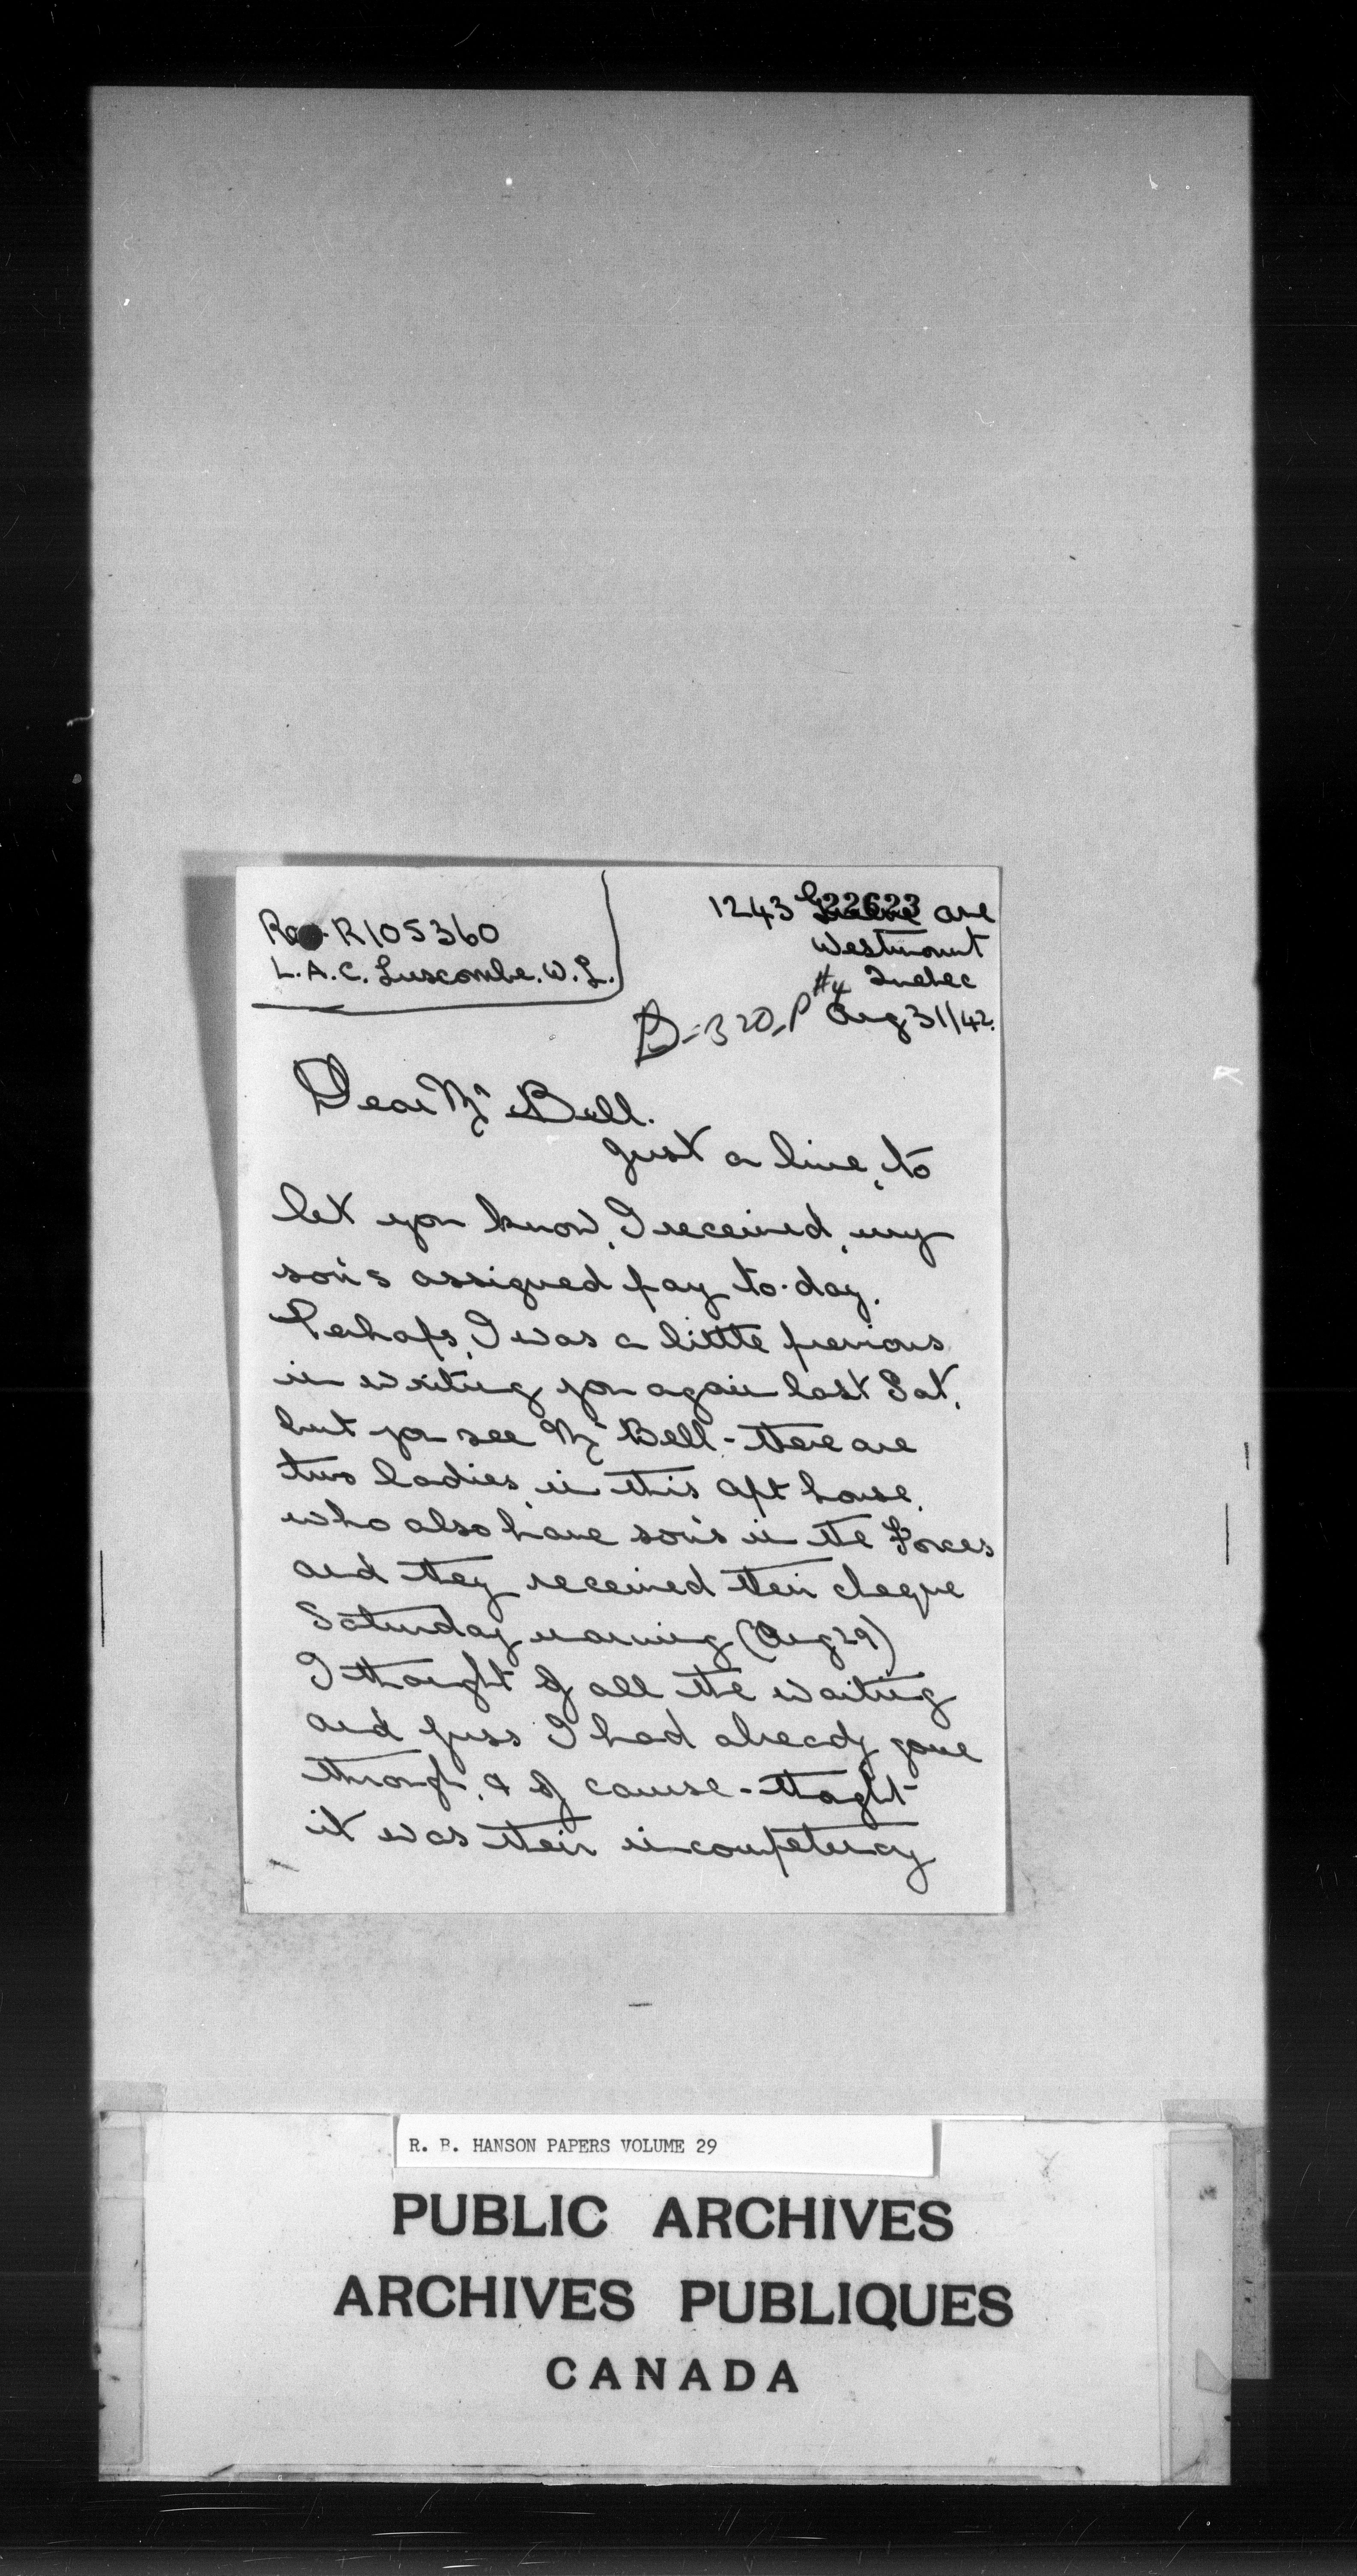 Reg. R105360
L.A.C. Luscombe. W. L.
1243 Greene ave
22623
Westmount
#4 Quebec
D-320-P Aug 31/42.
Dear Mr Bell.
Just a line, to
let you know, I received, my
son's assigned pay to-day.
Perhaps, I was a little previous
in writing you again last Sat,
but you see Mr Bell - there are
two ladies, in this apt house,
who also have son's in the Forces
and they received their cheque
Saturday morning (Aug 29)
I thought of all the waiting
and fuss I had already gone
through, & of cause - thoght
it was their incompetency
R. B. HANSON PAPERS VOLUME 29
PUBLIC ARCHIVES
ARCHIVES PUBLIQUES
CANADA